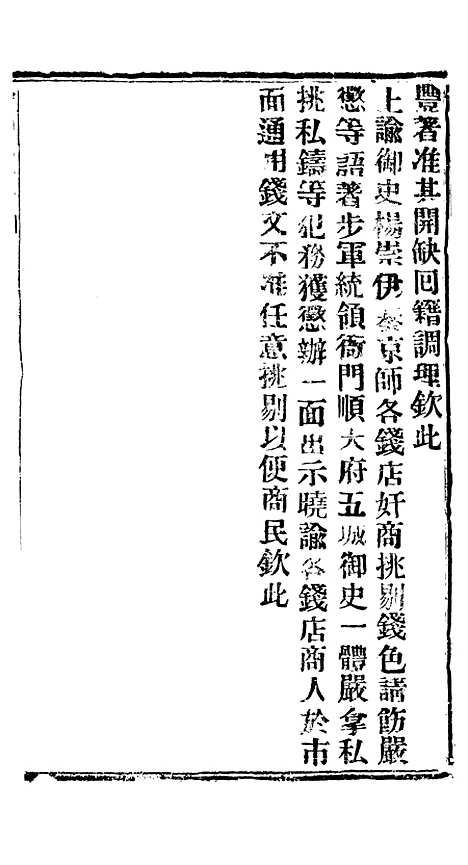 豐著准其開缺回籍調理欽此
上諭御史楊崇伊奏京師各錢店奸商挑剔錢色請飭嚴
懲等語著步軍統領衙門順天府五城御史一體嚴拿私
挑私鑄等犯務獲懲辦一面出示曉諭各錢店商人於市
面通用錢文不准任意挑剔以便商民欽此